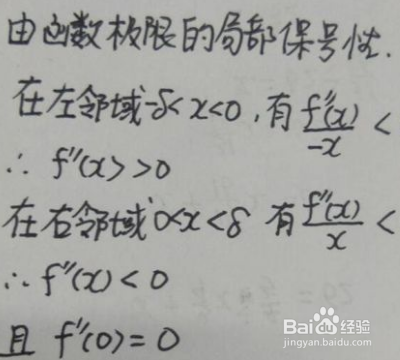 由函数极限的局部保号性.
在左邻域-δ<x<0,有f″(x)/-x <
∴ f″(x)>0
在右邻域0<x<δ 有f″(x)/x <
∴ f″(x)<0
且 f″(0)=0
Bai du 经验
jingyan.baidu.com